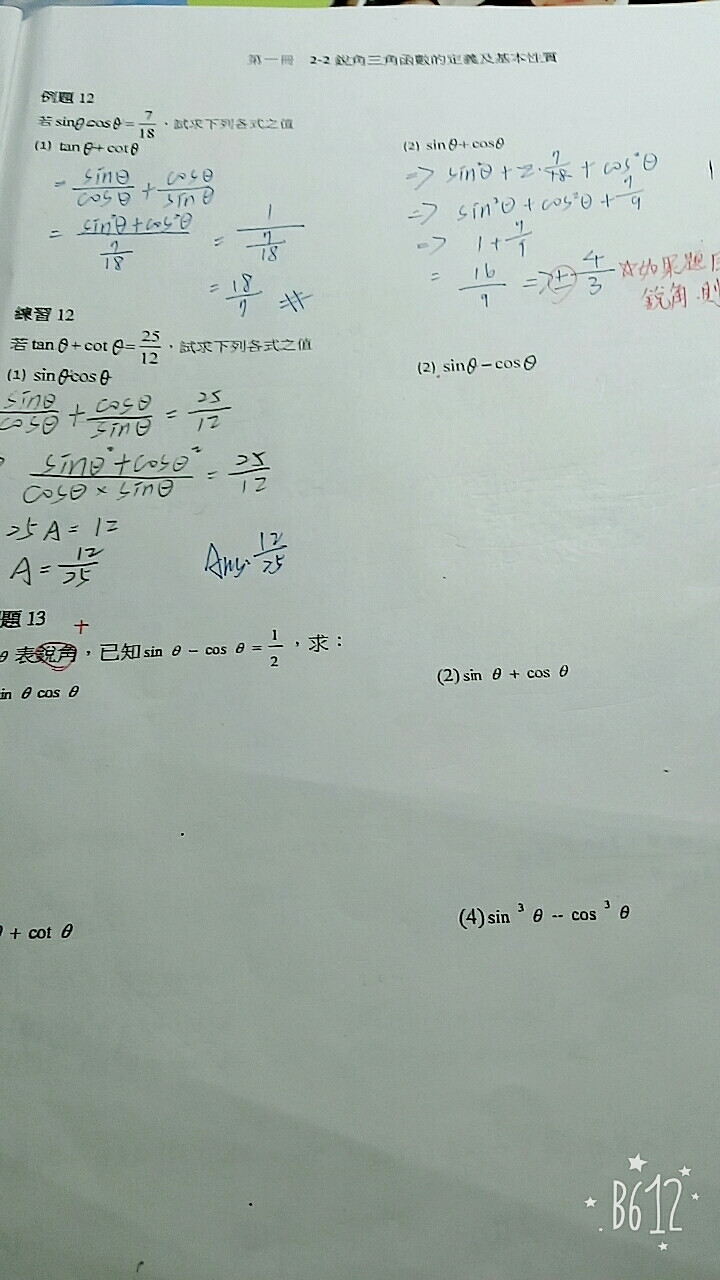 第一冊 2-2 銳角三角函數的定義及基本性質
例題 12
若 sinθcosθ = 7/18，試求下列各式之值
(1) tanθ + cotθ
= sinθ/cosθ + cosθ/sinθ
= (sin²θ + cos²θ)/(7/18) = 1/(7/18)
= 18/7
(2) sinθ + cosθ
=> sin²θ + 2·7/18 + cos²θ
=> sin²θ + cos²θ + 7/9
=> 1 + 7/9
= 16/9 => ± 4/3 ☆如果題目
銳角.則
練習 12
若 tanθ + cotθ = 25/12，試求下列各式之值
(1) sinθcosθ
sinθ/cosθ + cosθ/sinθ = 25/12
(sinθ² + cosθ²)/(cosθ × sinθ) = 25/12
25A = 12
A = 12/25
Ans: 12/25
(2) sinθ − cosθ
題 13
+
θ 表銳角，已知 sin θ − cos θ = 1/2，求：
in θ cos θ
(2) sin θ + cos θ
+ cot θ
(4) sin ³ θ -- cos ³ θ
B612